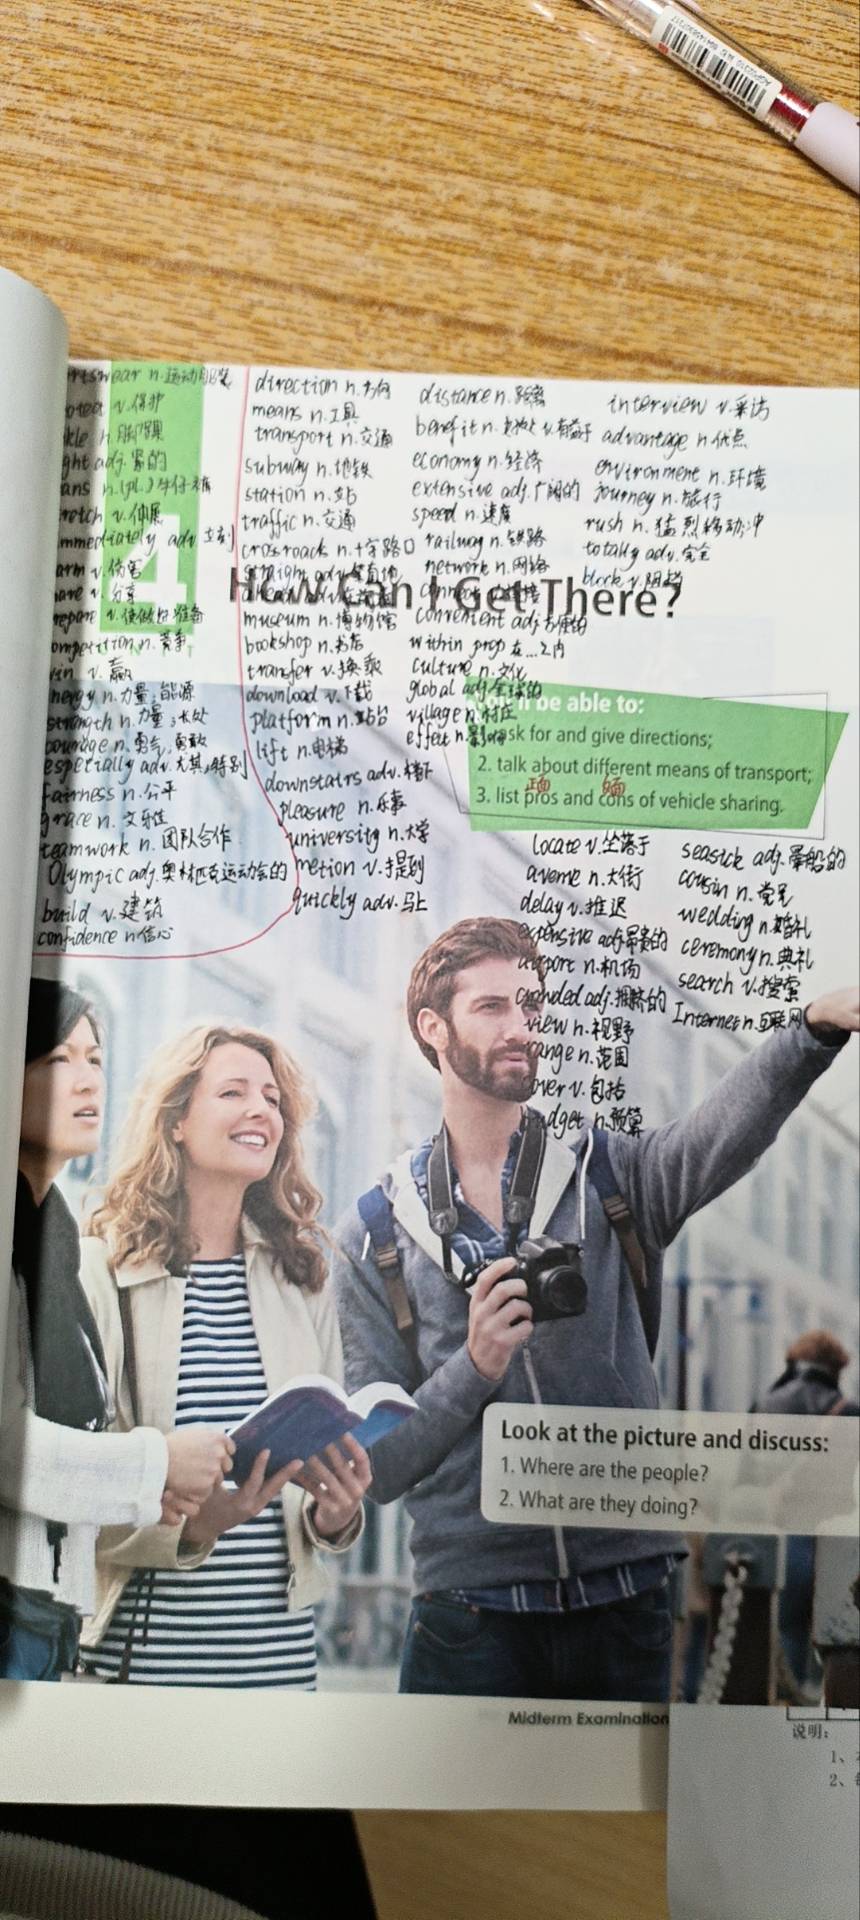 AGPG2310
rtswear n.运动服装
otect v.保护
kle n.脚踝
ght adj.紧的
ans n.(pl.)牛仔裤
retch v.伸展
mmediately adv.立刻
arm v.伤害
are v.分享
repare v.使做好准备
ompetition n.竞争
in v.赢
nergy n.力量;能源
strength n.力量;长处
courage n.勇气,勇敢
especially adv.尤其;特别
fairness n.公平
grace n.文雅
teamwork n.团队合作
Olympic adj.奥林匹克运动会的
build v.建筑
confidence n信心
direction n.方向
means n.工具
transport n.交通
subway n.地铁
station n.站
traffic n.交通
crossroads n.十字路口
straight adv.
ahead adv.
museum n.博物馆
bookshop n.书店
transfer v.换乘
download v.下载
platform n.站台
lift n.电梯
downstairs adv.楼下
pleasure n.乐事
university n.大学
metion v.提到
quickly adv.马上
distance n.距离
benefit n.好处 v.有益于
economy n.经济
extensive adj.广阔的
speed n.速度
railway n.铁路
network n.网络
connect v.连接
convenient adj.方便的
within prep 在...之内
culture n.文化
global adj.全球的
village n.村庄
effect n.影响
interview v.采访
advantage n.优点
environment n.环境
journey n.旅行
rush n.猛烈移动,冲
totally adv.完全
block v.阻挡
4
UNIT
How Can I Get There?
You'll be able to:
1. ask for and give directions;
2. talk about different means of transport;
正面
3. list pros and cons of vehicle sharing.
locate v.坐落于
aveme n.大街
delay v.推迟
expensive adj.昂贵的
airport n.机场
crowded adj.拥挤的
view n.视野
range n.范围
cover v.包括
budget n.预算
seasick adj.晕船的
cousin n.堂兄
wedding n.婚礼
ceremony n.典礼
search v.搜索
Internet n.互联网
Look at the picture and discuss:
1. Where are the people?
2. What are they doing?
Midterm Examination
说明:
1、
2、